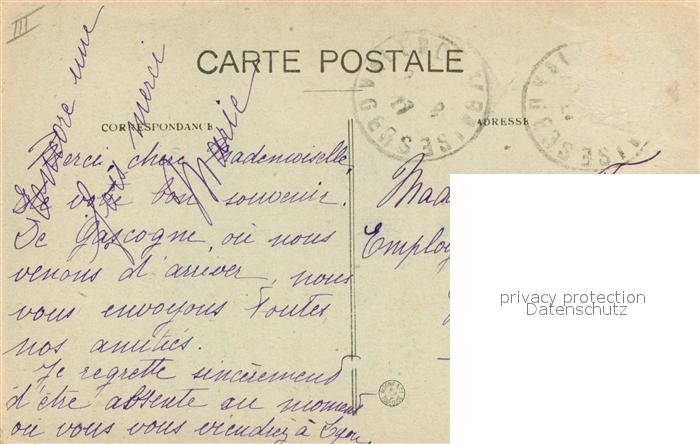 III
CARTE POSTALE
CORRESPONDANCE
ADRESSE
Encore une
fois merci
Marie
Merci chère Mademoiselle,
de votre bon souvenir.
De Gascogne, où nous
venons d'arriver, nous
vous envoyons toutes
nos amitiés.
Je regrette sincèrement
d'être absente au moment
où vous vous viendrez à Lyon,
Mad
Employ
privacy protection
Datenschutz